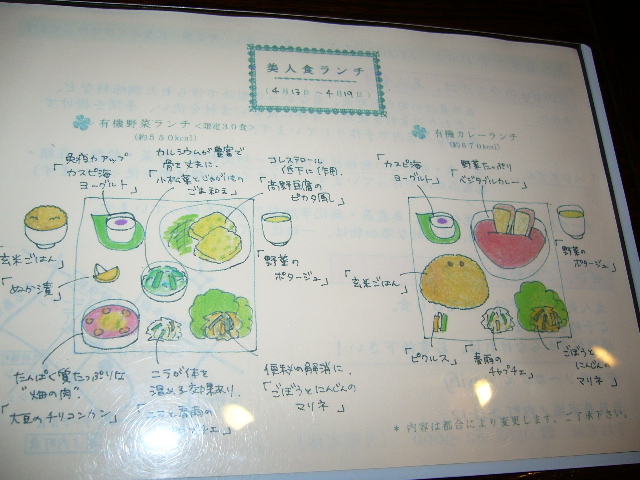 美人食ランチ
(4月13日～4月19日)
有機野菜ランチ<限定30食>
(約550kcal)
免疫力アップ
カスピ海
ヨーグルト」
カルシウムが豊富で
骨を丈夫に.
「小松菜とじゃがいもの
ごま和え」
コレステロール
低下に作用.
「高野豆腐の
ピカタ風」
「玄米ごはん」
「ぬか漬」
「野菜の
ポタージュ」
たんぱく質たっぷりな
"畑の肉"
「大豆のチリコンカン」
ニラが体を
温める効果あり.
「ニラと春雨の
便秘の解消に.
「ごぼうとにんじんの
マリネ」
有機カレーランチ
(約670kcal)
「カスピ海
ヨーグルト」
野菜たっぷり
「ベジタブルカレー」
「野菜の
ポタージュ」
「玄米ごはん」
「ピクルス」
「春雨の
チャプチェ」
「ごぼうと
にんじんの
マリネ」
* 内容は都合により変更します。ご了承下さい。